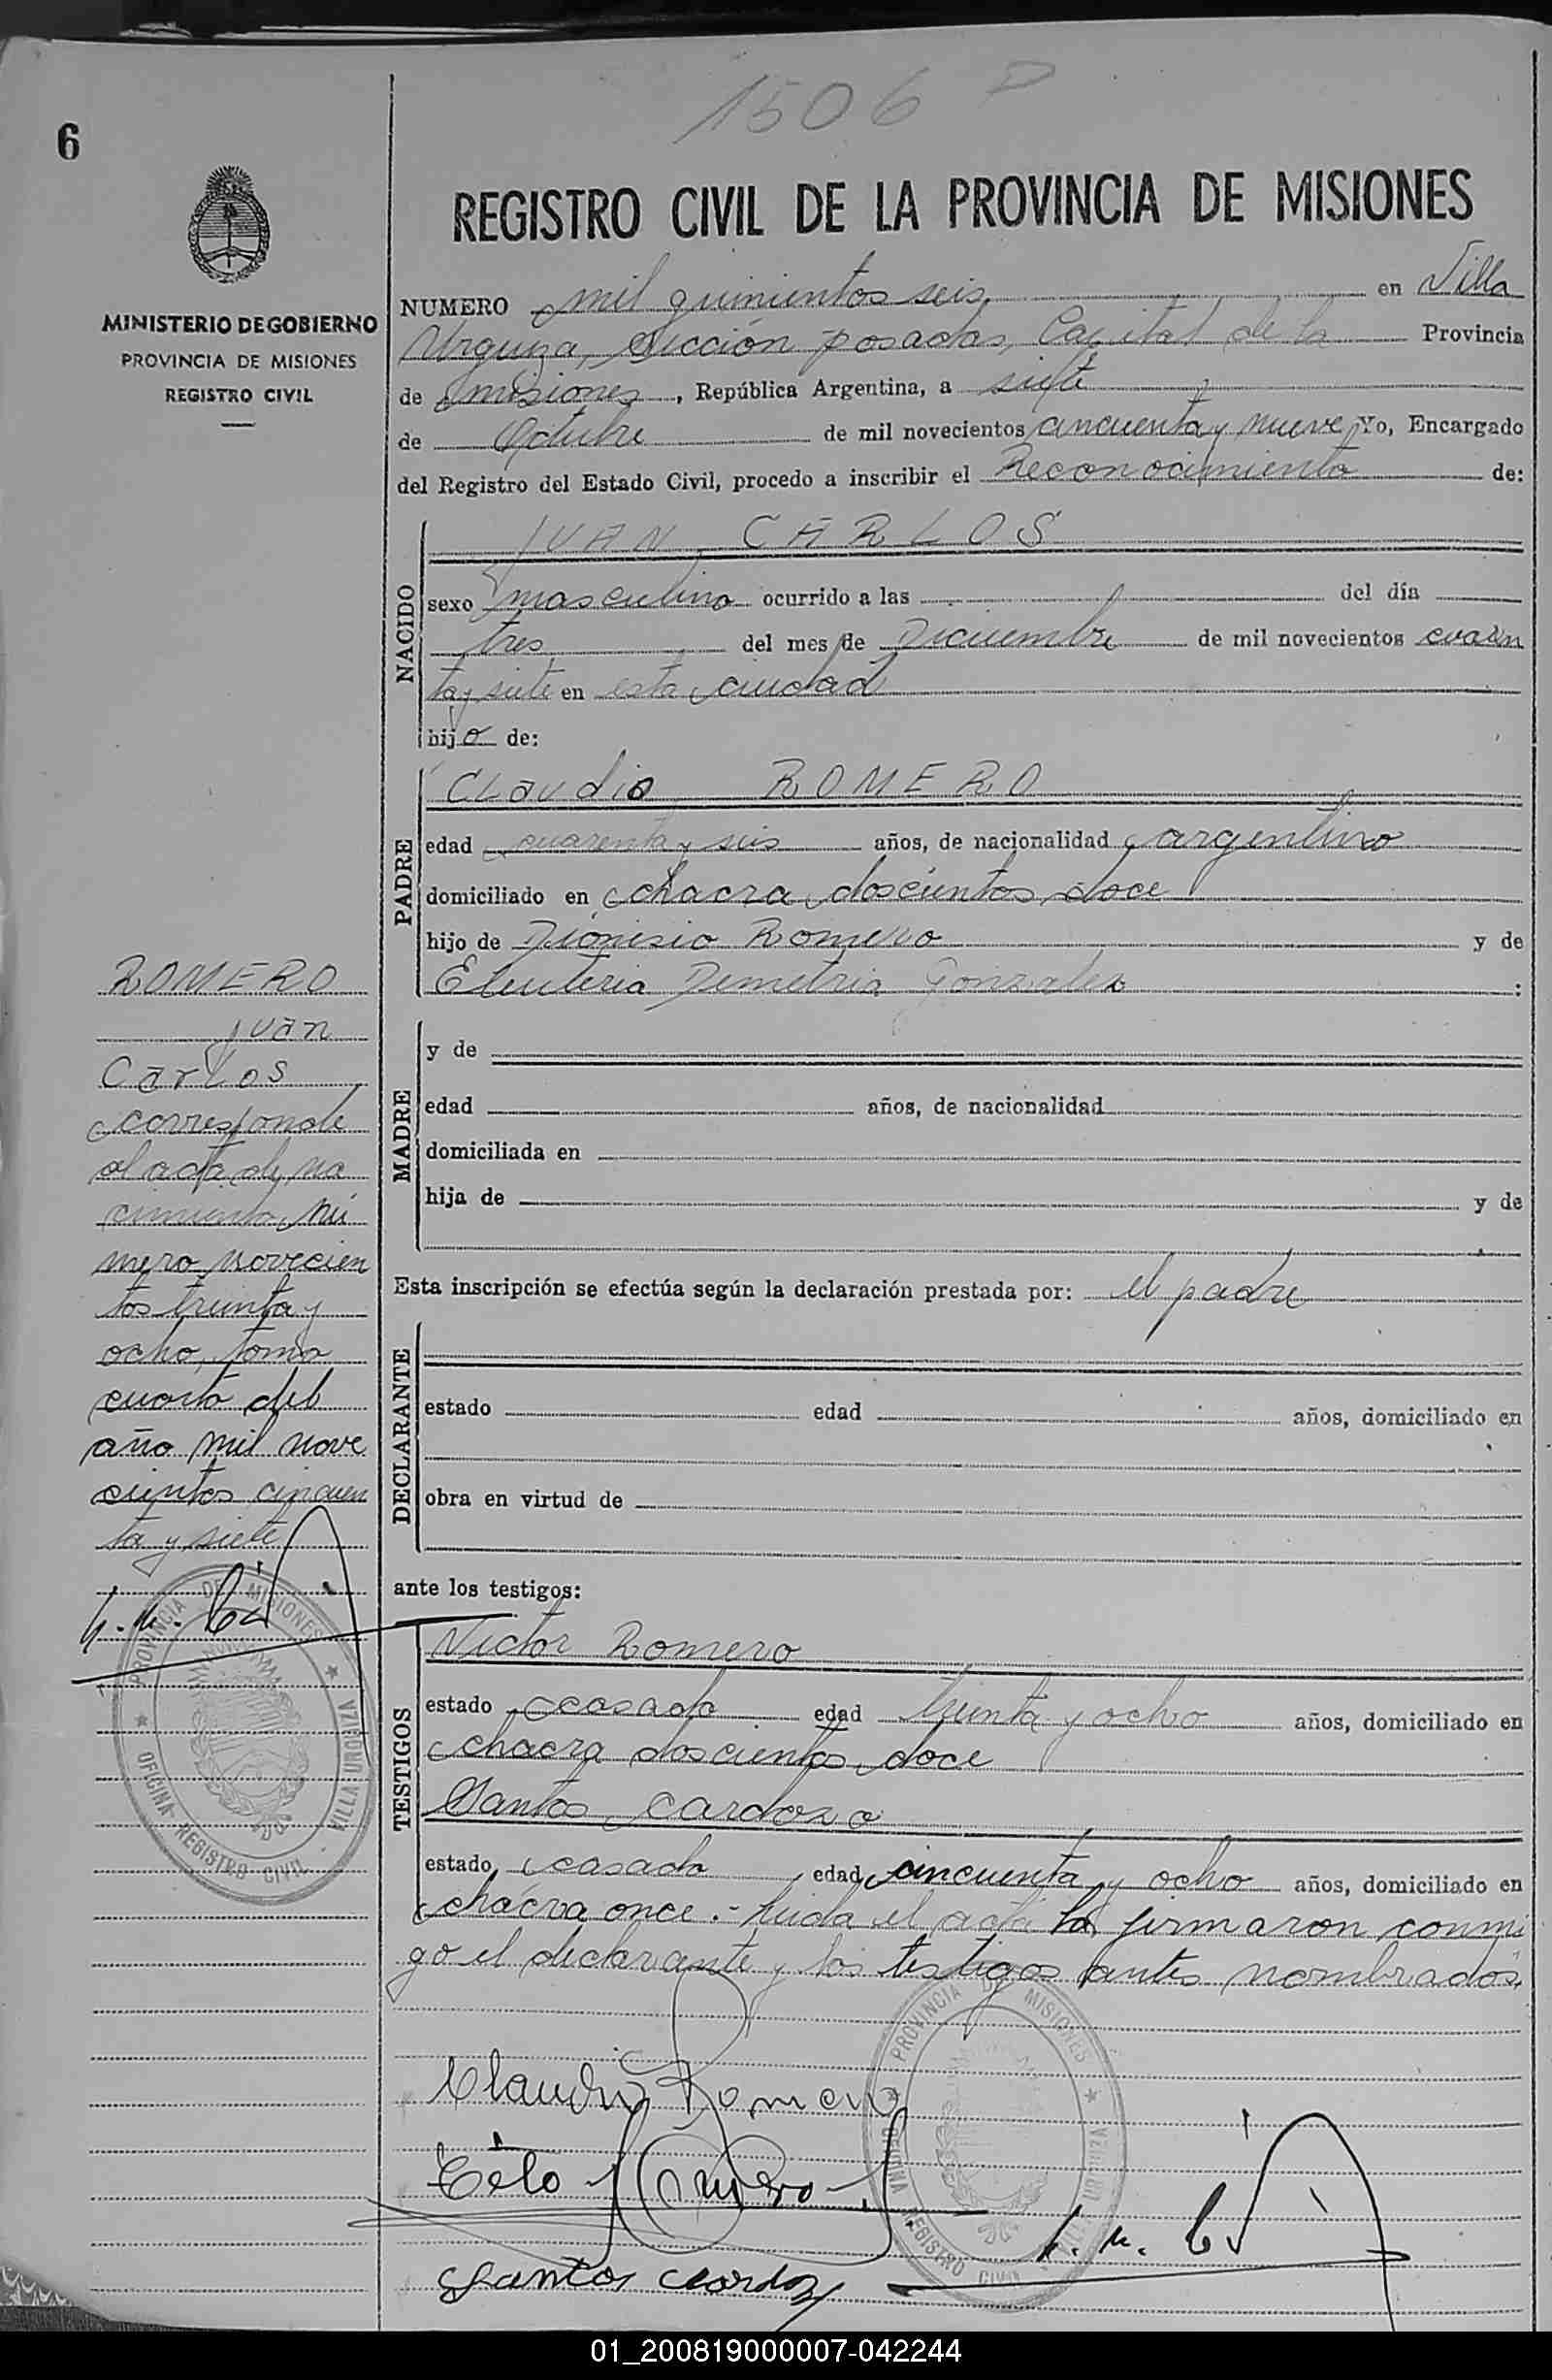 1506 P
6
REGISTRO CIVIL DE LA PROVINCIA DE MISIONES
MINISTERIO DE GOBIERNO
PROVINCIA DE MISIONES
REGISTRO CIVIL
NUMERO mil quinientos seis en Villa
Urquiza, sección posadas, Capital de la Provincia
de misiones, República Argentina, a siete
de Octubre de mil novecientos cincuenta y nueve Yo, Encargado
del Registro del Estado Civil, procedo a inscribir el Reconocimiento de:
NACIDO
JUAN CARLOS
sexo masculino ocurrido a las del día
tres del mes de Diciembre de mil novecientos cuaren
ta y siete en esta ciudad
hijo de:
PADRE
Claudio ROMERO
edad cuarenta y seis años, de nacionalidad argentino
domiciliado en chacra doscientos doce
hijo de Dionisio Romero y de
Eleuteria Demetria Gonzalez :
MADRE
y de
edad años, de nacionalidad
domiciliada en
hija de y de
Esta inscripción se efectúa según la declaración prestada por: el padre
DECLARANTE
estado edad años, domiciliado en
obra en virtud de
ante los testigos:
TESTIGOS
Victor Romero
estado casado edad treinta y ocho años, domiciliado en
chacra doscientos doce
Santos Cardozo
estado casado edad cincuenta y ocho años, domiciliado en
chacra once.- Leida el acta la firmaron conmi
go el declarante y los testigos antes nombrados.
Claudio Romero
Romero
Santos Cardozo
ROMERO
Juan
Carlos
corresponde
al acta de na
cimiento nú
mero novecien
tos treinta y
ocho, tomo
cuarto del
año mil nove
cientos cincuen
ta y siete
PROVINCIA DE MISIONES
VILLA URQUIZA
OFICINA REGISTRO CIVIL
PROVINCIA DE MISIONES
VILLA URQUIZA
OFICINA REGISTRO CIVIL
01_200819000007-042244